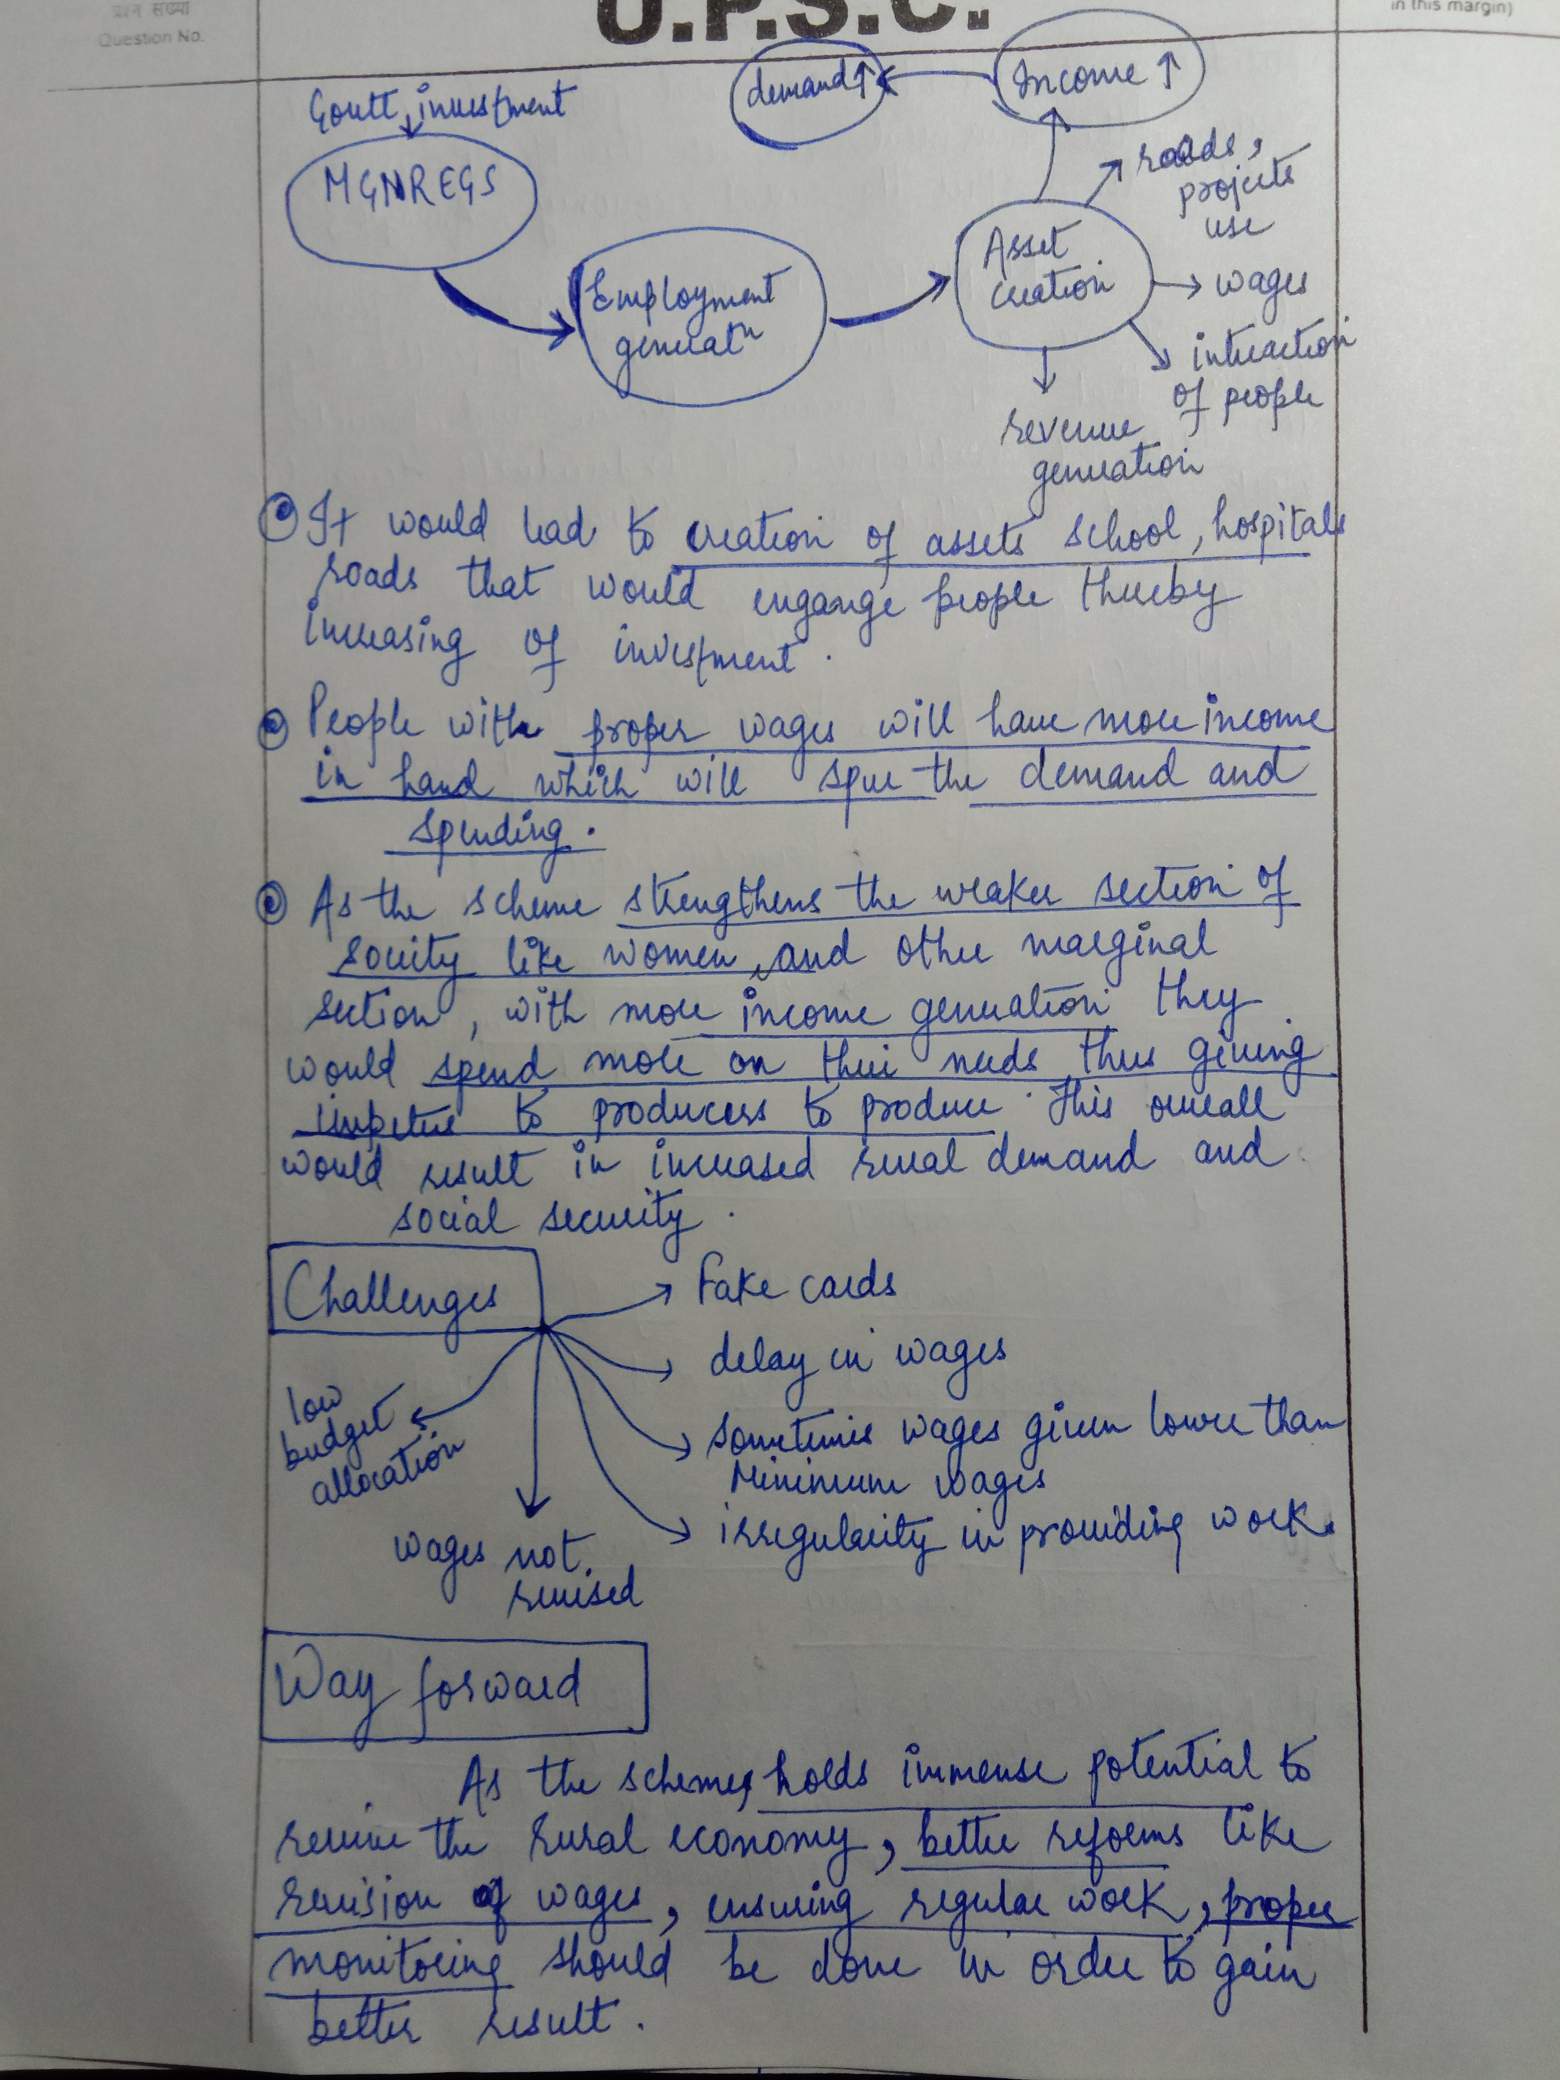 प्रश्न संख्या
Question No.
U.P.S.C.
in this margin)
Govtt investment
MGNREGS
Employment
generatn
Asset
creation
Income ↑
demand ↑
roads,
projects
use
wages
interaction
of people
revenue
generation
It would lead to creation of assets school, hospitals
roads that would engange people thereby
increasing of investment.
People with proper wages will have more income
in hand which will spur the demand and
spending.
As the scheme strengthens the weaker section of
society like women, and other marginal
section, with more income generation they
would spend more on their needs thus giving
impetus to producers to produce. This overall
would result in increased rural demand and
social security.
Challenges
Fake cards
delay in wages
sometimes wages given lower than
Minimum wages
irregularity in providing work.
wages not
revised
low
budget
allocation
Way forward
As the scheme, holds immense potential to
revive the rural economy, better reforms like
revision of wages, ensuring regular work, proper
monitoring should be done in order to gain
better result.